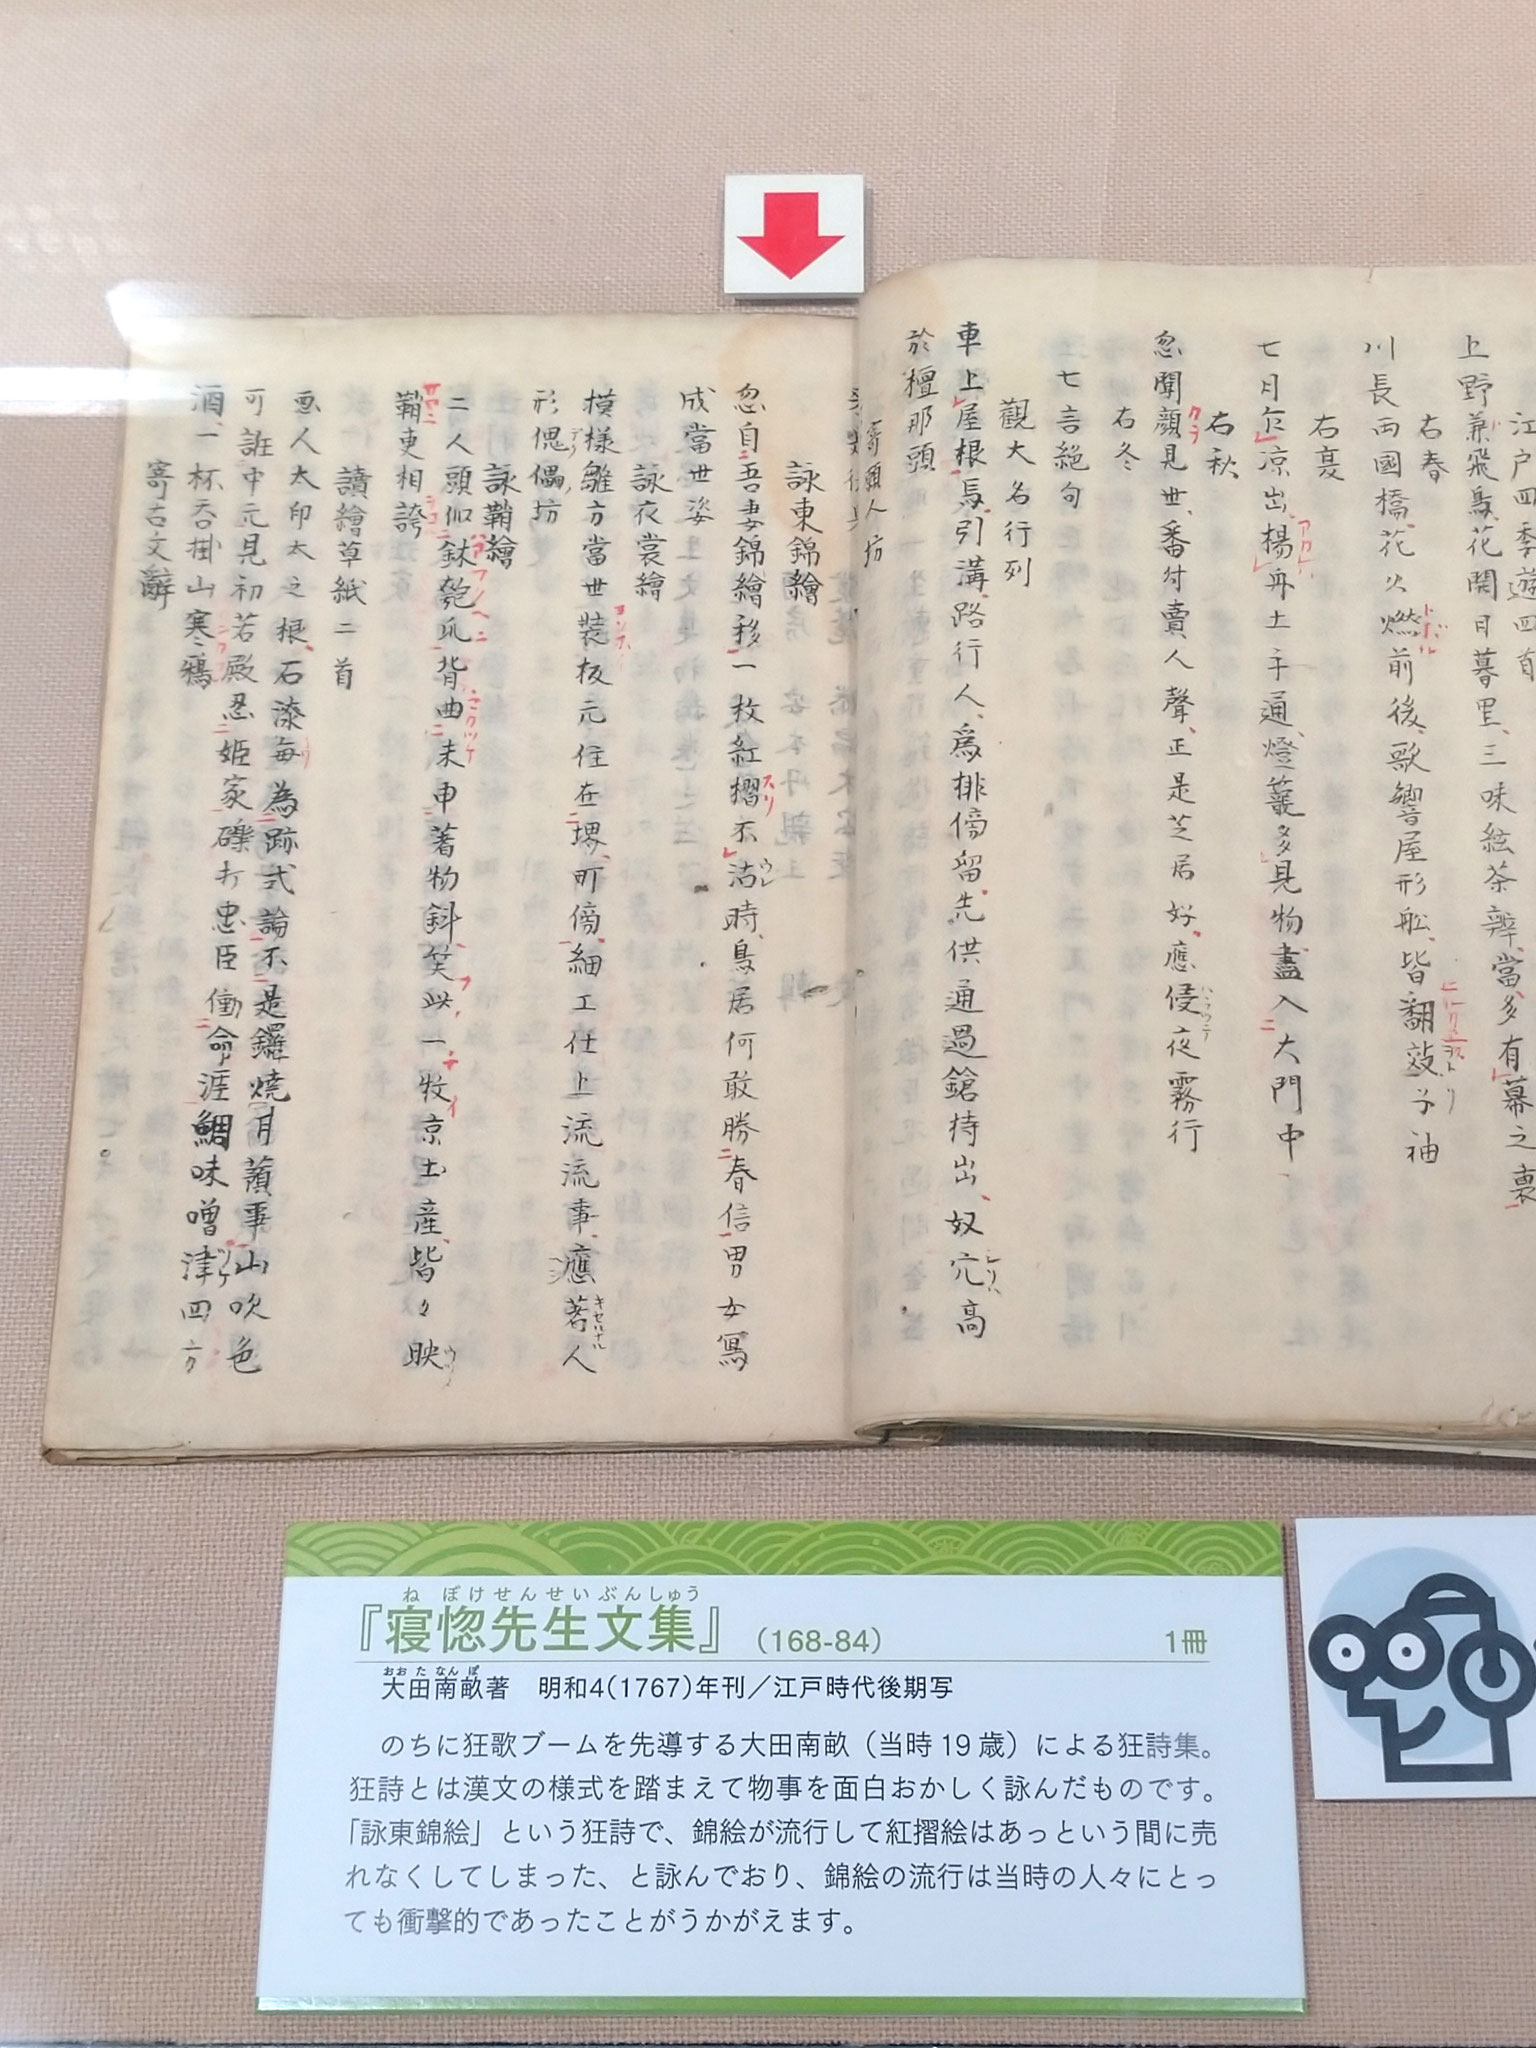 江戸四季遊四首
上野兼飛鳥花開日暮里三味絃茶辨當多有幕之裏
右春
川長両國橋花火燃前後歌響屋形舩皆翻
袖
右夏
七月乍凉出揚舟土手通燈籠多見物盡入大門中
右秋
忽聞顔見世番付賣人聲正是芝居好應侵夜霧行
右冬
七言絶句
觀大名行列
車上屋根馬引溝路行人為排傍留先供通過鎗持出奴穴高
於檀那頭
寄頭人坊
詠東錦繪
忽自吾妻錦繪移一枚紅摺不沽時鳥居何敢勝春信男女寫
成當世姿
詠衣裳繪
模様雛方當世装板元住在堺町傍細工仕上流流事應著人
形傀儡坊
詠鞘繪
二人頭似鉢匏瓜背曲未申著物斜笑此一枚京土産皆々映
鞘更相誇
讀繪草紙二首
悪人太印太之根石漆毎為跡式論不是鑼焼月蘋事山吹色
可誰中元見初若殿忍姫家礫打忠臣働命涯鯛味噌津四方
酒一杯呑掛山寒鴉
寄古文辭
『寝惚先生文集』 (168-84) 1冊
ねぼけせんせいぶんしゅう
大田南畝著 明和4(1767)年刊／江戸時代後期写
おおたなんぽ
のちに狂歌ブームを先導する大田南畝（当時19歳）による狂詩集。
狂詩とは漢文の様式を踏まえて物事を面白おかしく詠んだものです。
「詠東錦絵」という狂詩で、錦絵が流行して紅摺絵はあっという間に売
れなくしてしまった、と詠んでおり、錦絵の流行は当時の人々にとっ
ても衝撃的であったことがうかがえます。